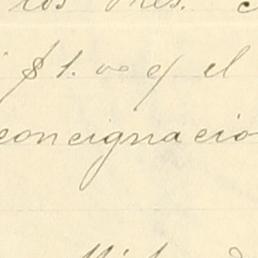 los Mrs.
$1.00 c/ el
concignacio